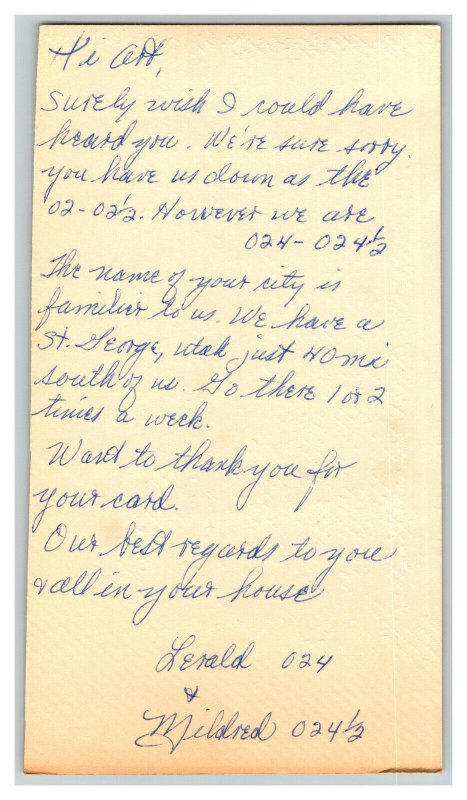 Hi Art,
Surely wish I could have
heard you. We're sure sorry
you have us down as the
02-02½. However we are
024-024½
The name of your city is
familier to us. We have a
St. George, Utah just 40 mi
south of us. Go there 1 or 2
times a week.
Want to thank you for
your card.
Our best regards to you
& all in your house
Lerald 024
&
Mildred 024½